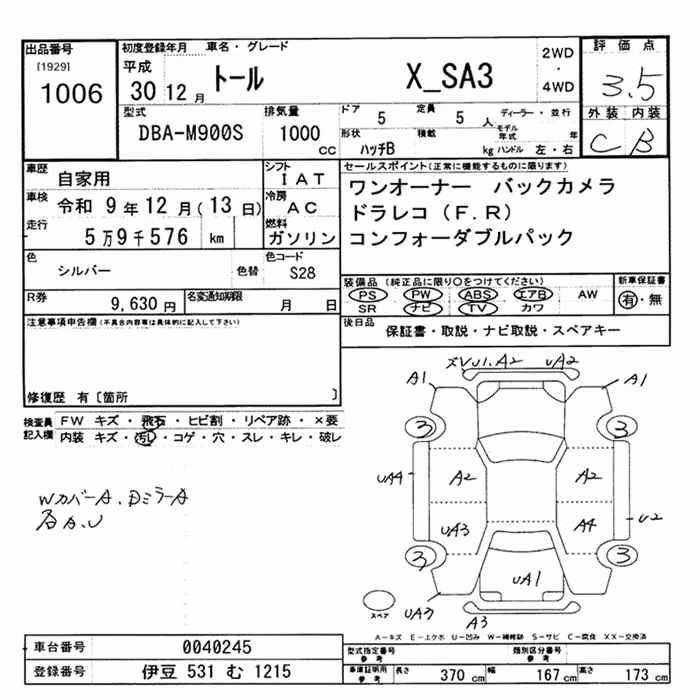 出品番号
[1929]
1006
初度登録年月 車名・グレード
平成
30 12 月 トール X_SA3
2WD
・
4WD
評価点
3.5
外装 内装
C B
型式
DBA-M900S
排気量
1000 cc
ドア 5
定員 5 人
ディーラー・並行
モデル年式 年
形状 ハッチB
積載 kg
ハンドル 左・右
車歴
自家用
車検 令和 9 年 12 月 (13 日)
走行
5 万 9 千 576 km
シフト
IAT
冷房
AC
燃料
ガソリン
色
シルバー 色替
色コード
S28
R券
9,630 円
名変通知期限
月 日
セールスポイント(正常に機能するものに限ります)
ワンオーナー バックカメラ
ドラレコ(F.R)
コンフォーダブルパック
装備品 (純正品に限り○をつけてください)
PS PW ABS エアB AW
SR ナビ TV カワ
新車保証書
有・無
後日品
保証書・取説・ナビ取説・スペアキー
注意事項申告欄(不具合内容等は具体的に記入して下さい)
修復歴 有〔箇所 〕
検査員記入欄
FW キズ・飛石・ヒビ割・リペア跡・×要
内装 キズ・汚レ・コゲ・穴・スレ・キレ・破レ
WカバーA.DミラーA
各A.U
ズVU1.A2 UA2
A1 A1
3 3
UA4 A2 A2
UA3 A4 U2
3 3
UA1
UA3 A3
スペア
A−キズ E−エクボ U−凹み W−補修跡 S−サビ C−腐食 XX−交換済
車台番号 0040245
登録番号 伊豆 531 む 1215
型式指定番号
参考
類別区分番号
参考
車庫証明用
参考
長さ 370 cm 幅 167 cm 高さ 173 cm